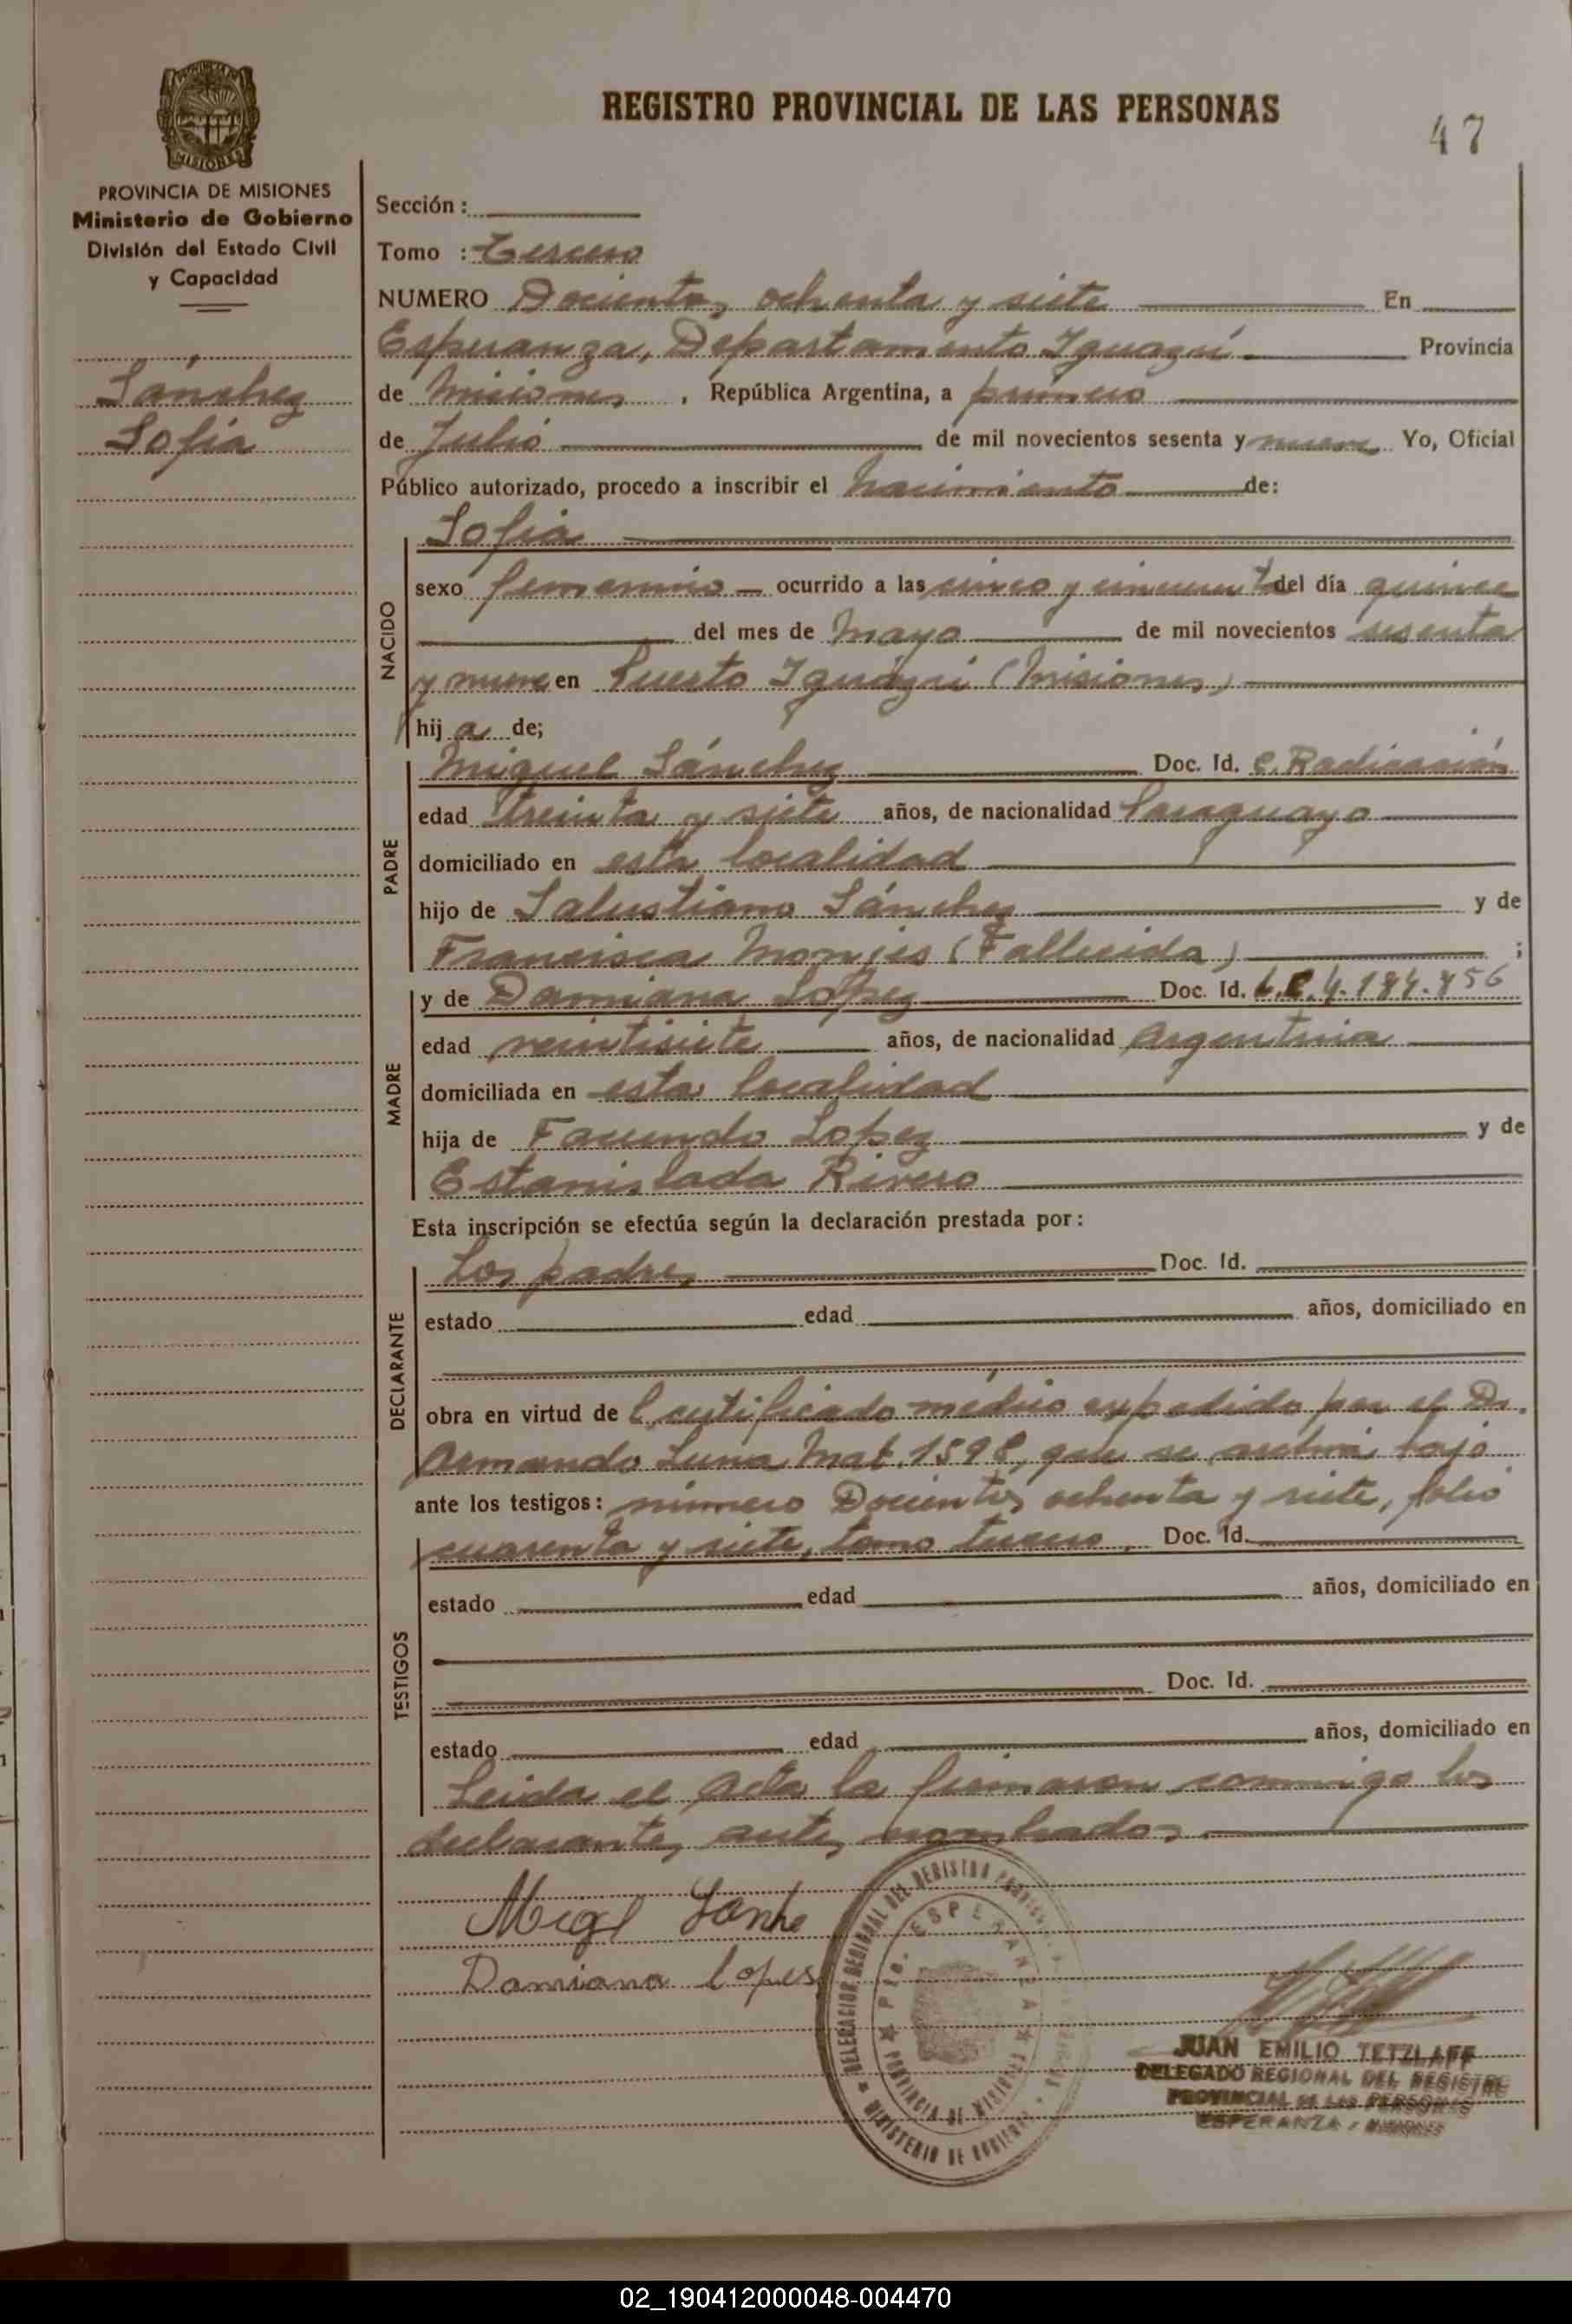 REGISTRO PROVINCIAL DE LAS PERSONAS
47
PROVINCIA DE MISIONES
Ministerio de Gobierno
División del Estado Civil
y Capacidad
Sánchez
Sofia
Sección :
Tomo : Tercero
NUMERO Docientos ochenta y siete En
Esperanza, Departamento Iguazú Provincia
de Misiones, República Argentina, a primero
de Julio de mil novecientos sesenta y nueve Yo, Oficial
Público autorizado, procedo a inscribir el nacimiento de:
NACIDO
Sofia
sexo femenino ocurrido a las cinco y cincuenta del día quince
del mes de Mayo de mil novecientos sesenta
y nueve en Puerto Iguazú (Misiones)
hij a de;
PADRE
Miguel Sánchez Doc. Id. C. Radicación
edad treinta y siete años, de nacionalidad Paraguayo
domiciliado en esta localidad
hijo de Salustiano Sánchez y de
Francisca (Fallecida) ;
MADRE
y de Damiana López Doc. Id.
edad veintisiete años, de nacionalidad Argentina
domiciliada en esta localidad
hija de Facundo Lopez y de
Estanislada Rivero
Esta inscripción se efectúa según la declaración prestada por:
DECLARANTE
Los padres Doc. Id.
estado edad años, domiciliado en
obra en virtud de l certificado médico expedido por el Dr.
Armando Luna Mat. 1598, que se archiva bajo
ante los testigos: número Docientos ochenta y siete, folio
cuarenta y siete, tomo tercero. Doc. Id.
TESTIGOS
estado edad años, domiciliado en
Doc. Id.
estado edad años, domiciliado en
Leida el Acta la firmaron conmigo los
declarantes antes nombrados.
Migel Sanhe
Damiana Lopes
DELEGACION REGIONAL DEL REGISTRO
Pto. ESPERANZA
PROVINCIA DE MISIONES
MINISTERIO DE GOBIERNO
JUAN EMILIO TETZLAFF
DELEGADO REGIONAL DEL REGISTRO
PROVINCIAL DE LAS PERSONAS
ESPERANZA - MISIONES
02_190412000048-004470